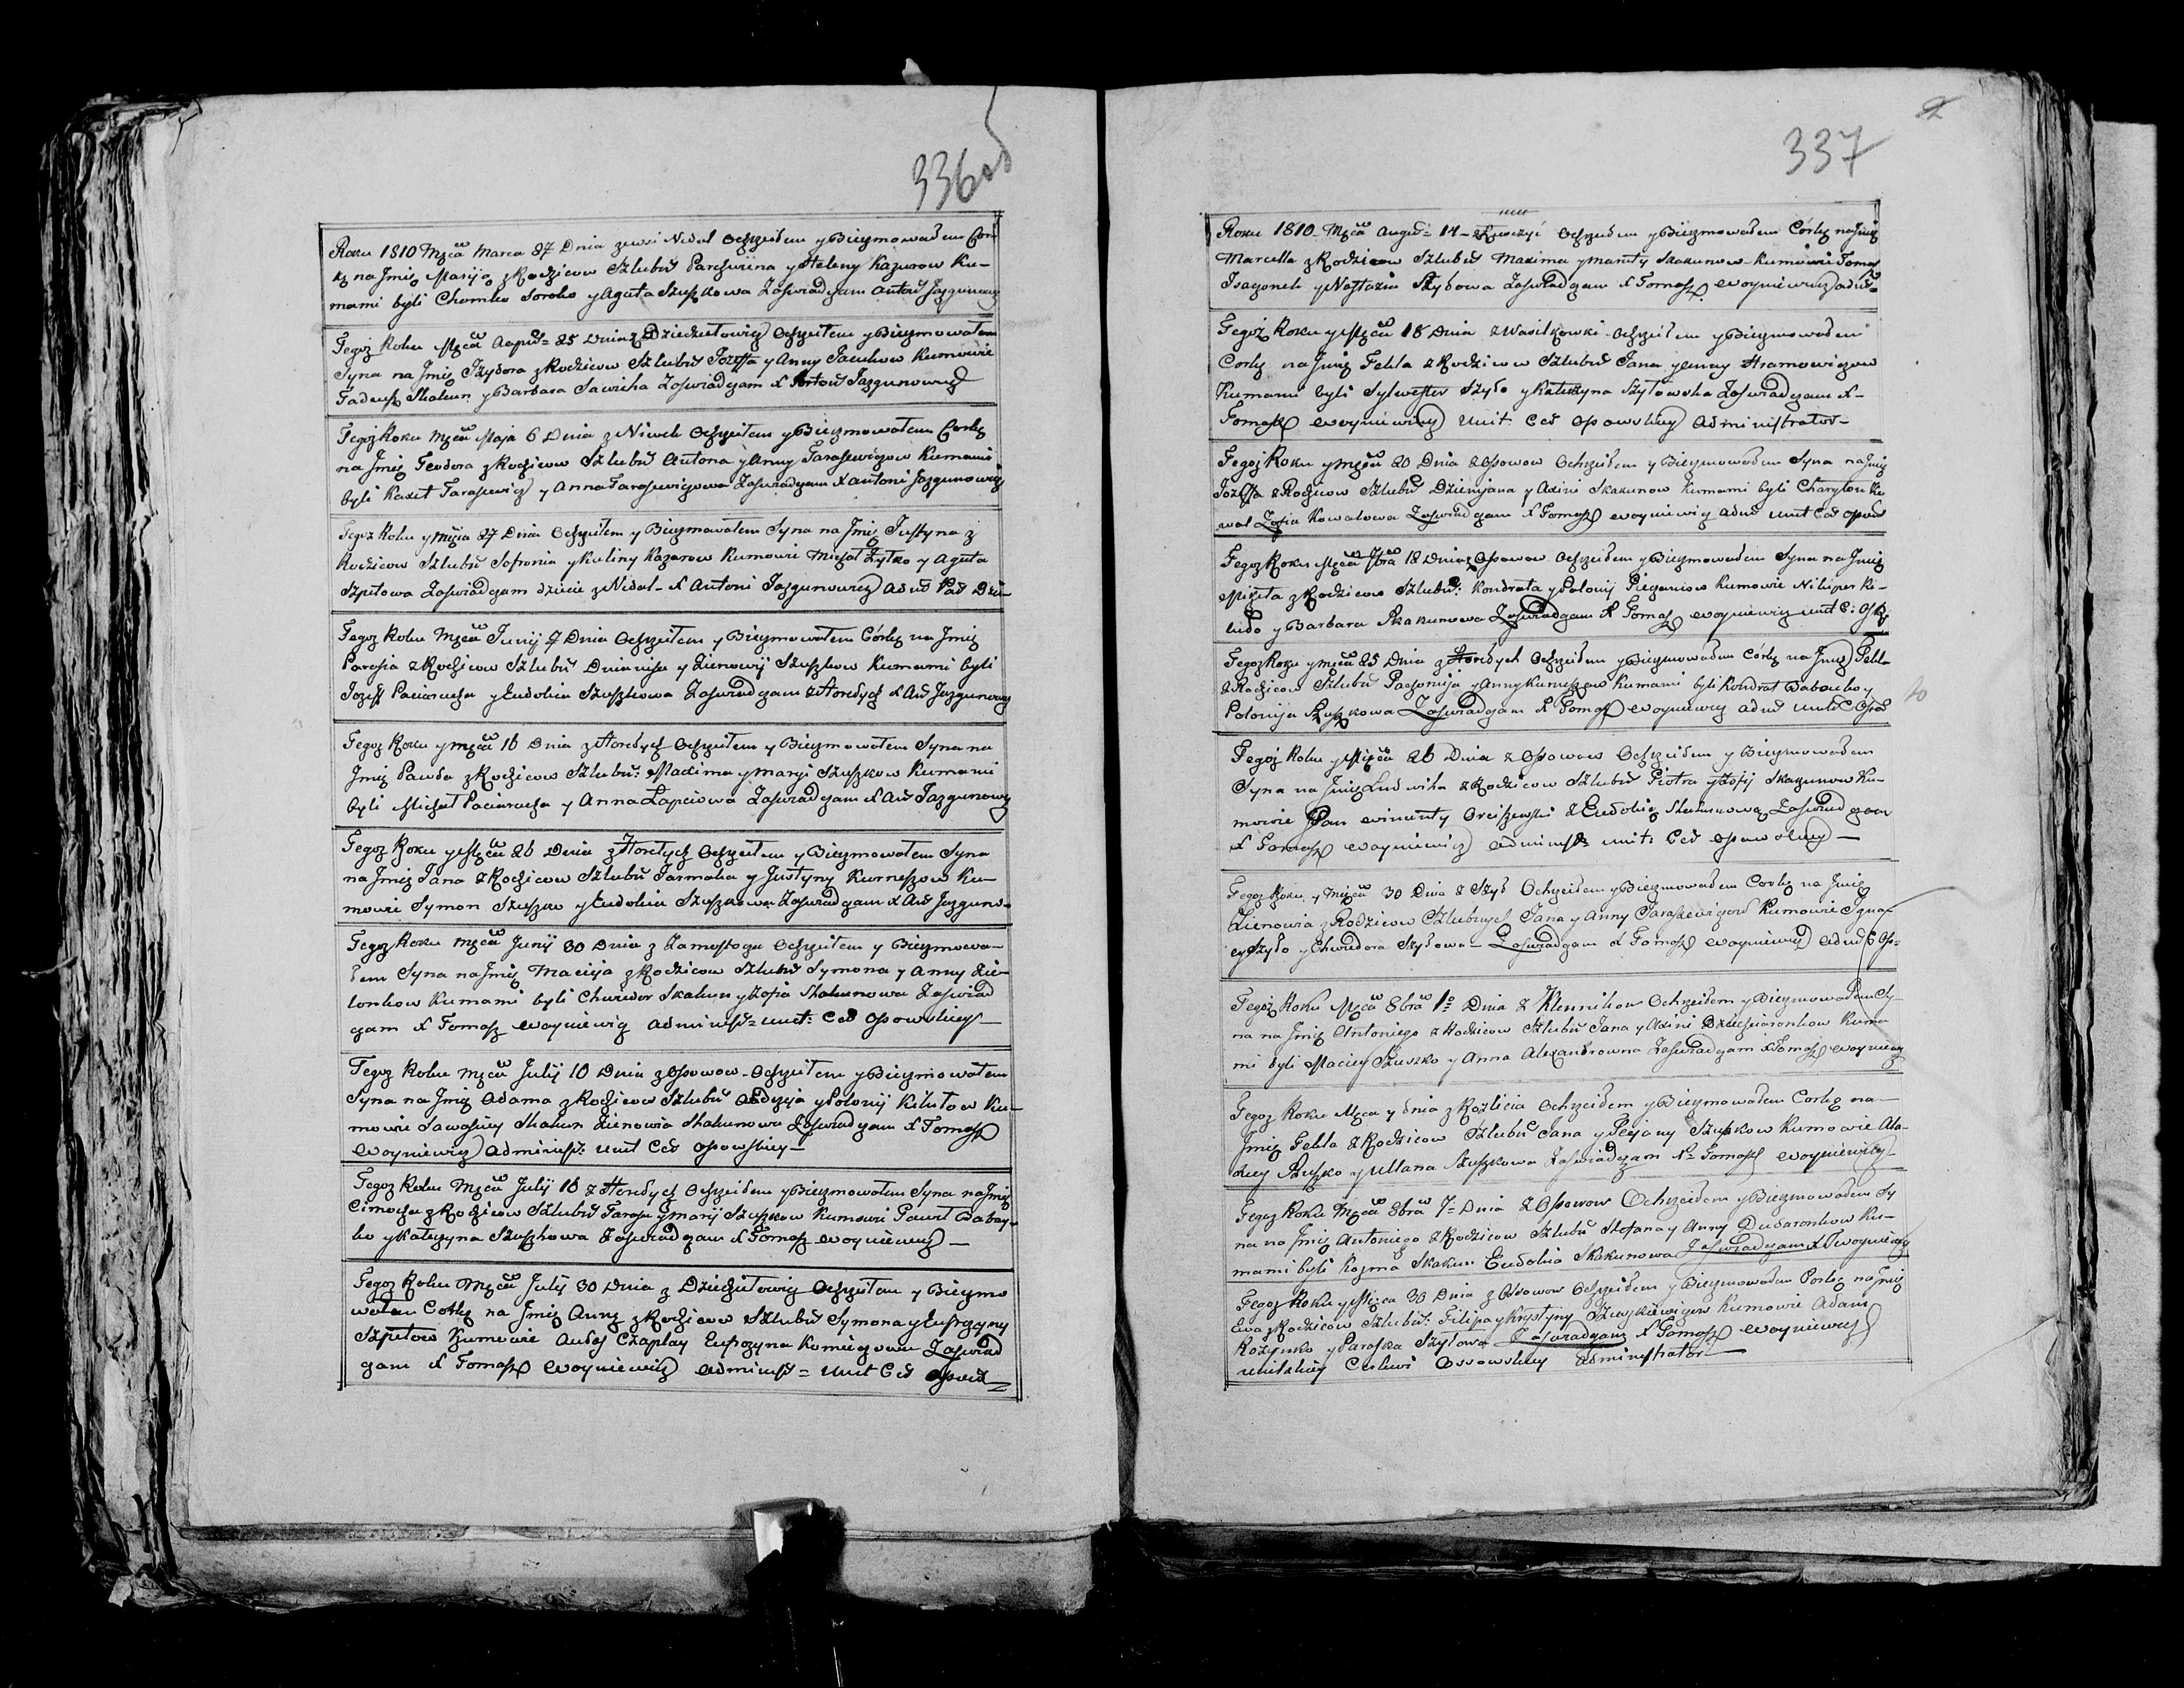 336 od
Roku 1810 Mẹca Marca 27 Dnia zewsi Nidal Ochrzciłem y Bierzmowałem Cor-
kę na Jmię Maryię z Rodzicow Szlubn Parchwiina y Heleny Kazurow Ku-
mami byli Chomko Soroko y Agata Szuszkowa Zaświadczam Antoń Jazgunowicz
Tegoż Roku Mẹca 25 Dnia z Dziedziełowicz Ochrzciłem y Bierzmowałem
Syna na Jmię Jzydora z Rodzicow Szlubn Jozeffa y Anny Saculow Kumowie
Tadeusz Skakun y Barbara Sawicka Zaświadczam X Antoń Jazgunowicz
Tegoż Roku Mẹca Maja 6 Dnia z Niwek Ochrzciłem y Bierzmowałem Corkę
na Jmię Teodora z Rodzicow Szlubn Antona y Anny Tarasewiczow Kumami
byli Tarasewicz y Anna Tarasewiczowa Zaświadczam X Antoni Jazgunowicz
Tegoż Roku y Mẹca 27 Dnia Ochrzciłem y Bierzmowałem Syna na Jmię Justyna z
Rodzicow Szlubn Sofronia y Kuliny Kazurow Kumowie Michał Zytko y Agata
Szpitowa Zaświadczam dziecie z Nidal - X Antoni Jazgunowicz
Tegoż Roku Mẹca Junij 7 Dnia Ochrzciłem y Bierzmowałem Córkę na Jmię
Parasia z Rodzicow Szlubn Dnianisa y Zienowij Szuszkow Kumami byli
Jozeff Paciarucha y Eudokia Szuszkowa Zaświadczam z Horełych X Jazgunowicz
Tegoż Roku y Mẹca 16 Dnia z Horełych Ochrzciłem y Bierzmowałem Syna na
Jmię Pawła z Rodzicow Szlubn: Maxima y Maryi Szuszkow Kumami
byli Michał Paciarucha y Anna Łapciowa Zaświadczam X Jazgunowicz
Tegoż Roku y Mẹca 26 Dnia z Horełych Ochrzciłem y Bierzmowałem Syna
na Jmię Jana z Rodzicow Szlubn Jarmoła y Justyny Kurneszow Ku-
mowie Symon Szuszko y Eudokia Szuszkowa Zaświadczam X
Tegoż Roku Mẹca Junij 30 Dnia z Zamostoga Ochrzciłem y Bierzmowa-
łem Syna na Jmię Macieja z Rodzicow Szlubn Symona y Anny Zie-
lonkow Kumami byli Chwiedor Skakun y Zofia Skakunowa Zaświad
czam X Tomasz Woyniewicz Administ= Unit: Ceŕ Osowskiey
Tegoż Roku Mẹca Julij 10 Dnia z Ossowow - Ochrzciłem y Bierzmowałem
Syna na Jmię Adama z Rodzicow Szlubn y Polonij Kiłutow Ku-
mowie Sawasiey Skakun Zienowia Skakunowa Zaświadczam X Tomasz
Woyniewicz Administ: Unit Ceŕ Osowskiey
Tegoż Roku Mẹca Julij 16 z Horełych Ochrzciłem y Bierzmowałem Syna na Jmię
Cimocha z Rodzicow Szlubn Tarasa y Maryi Szuszkow Kumowie Paweł Babay-
ko y Katerzyna Szuszkowa Zaświadczam X Tomasz Woyniewicz
Tegoż Roku Mẹca Julij 30 Dnia z Dziedziełowicz Ochrzciłem y Bierzmo
wałem Corkę na Jmię Annę z Rodzicow Szlubn Symona y Eufrozyny
Szpitow Kumowie Czaplay Eufrozyna Zaświad
czam X Tomasz Woyniewicz Administ = Unit Ceŕ
337
Roku 1810 Mẹca August= 14 Ochrzciłem y Bierzmowałem Córkę na Jmię
Marcella z Rodzicow Szlubn Maxima y Maruty Skakunow - Kumowie Tomas
Jsaczonek y Nastazia Szyłowa Zaświadczam X Tomasz Woyniewicz
Tegoż Roku y Mẹca 18 Dnia z Wasilkowki - Ochrzciłem y Bierzmowałem
Corkę na Jmię Tekla z Rodzicow Szlubn Jana y Anny Hramowiczow
Kumami byli Sylwester Szyło y Katerzyna Szyłowska Zaświadczam X-
Tomasz Woyniewicz Unit Ceŕ Osowskiey Administrator-
Tegoż Roku y Mẹca 20 Dnia z Osowow Ochrzciłem y Bierzmowałem Syna na Jmię
Jozeffa z Rodzicow Szlubn Dziemjana y Axini Skakunow Kumami byli Charyton Ko
wal Zofia Kowalowa Zaświadczam X Tomasz Woyniewicz Unit Ceŕ
Tegoż Roku Mẹca 7bra 18 Dnia z Osowow Ochrzciłem y Bierzmowałem Syna na Jmię
Mikita z Rodzicow Szlubn: Kondrata y Polonij Kumowie
y Barbara Skakunowa Zaświadczam X Tomasz Woyniewicz
Tegoż Roku y Mẹca 25 Dnia z Horełych Ochrzciłem y Bierzmowałem Córkę na Jmię Tekla
z Rodzicow Szlubn Pachomija y Anny Kurneszow Kumami byli Kondrat Baboyko y
Polonija Szuszkowa Zaświadczam X Tomasz Woyniewicz
Tegoż Roku y Mẹca 26 Dnia z Osowow Ochrzciłem y Bierzmowałem
Syna na Jmię Ludwika z Rodzicow Szlubn Piotra y Zofij Skakunow Ku-
mowie Pan Winenty z Eudokią Skakunową Zaświadczam
X Tomasz Woyniewicz Unit: Ceŕ Osowskiey
Tegoż Roku y Mẹca 30 Dnia z Szył Ochrzciłem y Bierzmowałem Corkę na Jmię
Zienowia z Rodzicow Szlubnych Jana y Anny Taraszewiczow Kumowie Jgna-
cy Szyło y Chwiedora Szyłowa - Zaświadczam X Tomasz Woyniewicz
Tegoż Roku Mẹca 8bra 1o Dnia z Klennikow Ochrzciłem y Bierzmowałem Sy-
na na Jmię Antoniego z Rodzicow Szlubn Jana y Axini Kuma
mi byli Maciey Szuszko y Anna Alexandrowna Zaświadczam X Tomasz Woyniewicz
Tegoż Roku Mẹca y dnia z Rozlicia Ochrzciłem y Bierzmowałem Corkę na-
Jmię Tekla z Rodzicow Szlubn Jana y Szuszkow Kumowie
Szuszko y Ullana Szuszkowa Zaświadczam X Tomasz Woyniewicz
Tegoż Roku Mẹca 8bra 7= Dnia z Ossowow Ochrzciłem y Bierzmowałem Sy
na na Jmię Antoniego z Rodzicow Szlubn Stefana y Anny Dudaronkow Ku-
mami byli Kozma Skakun Eudokia Skakunowa Zaświadczam X T Woyniewicz
Tegoż Roku y Mẹca 30 Dnia z Ossowow Ochrzciłem y Bierzmowałem Corkę na Jmię
Ewa z Rodzicow Szlubn: Filipa y Krystyny Kumowie Adam
y Paraska Szyłowa Zaświadczam X Tomasz Woyniewicz
Unitskiey Cerkwi Ossowskiey Administrator